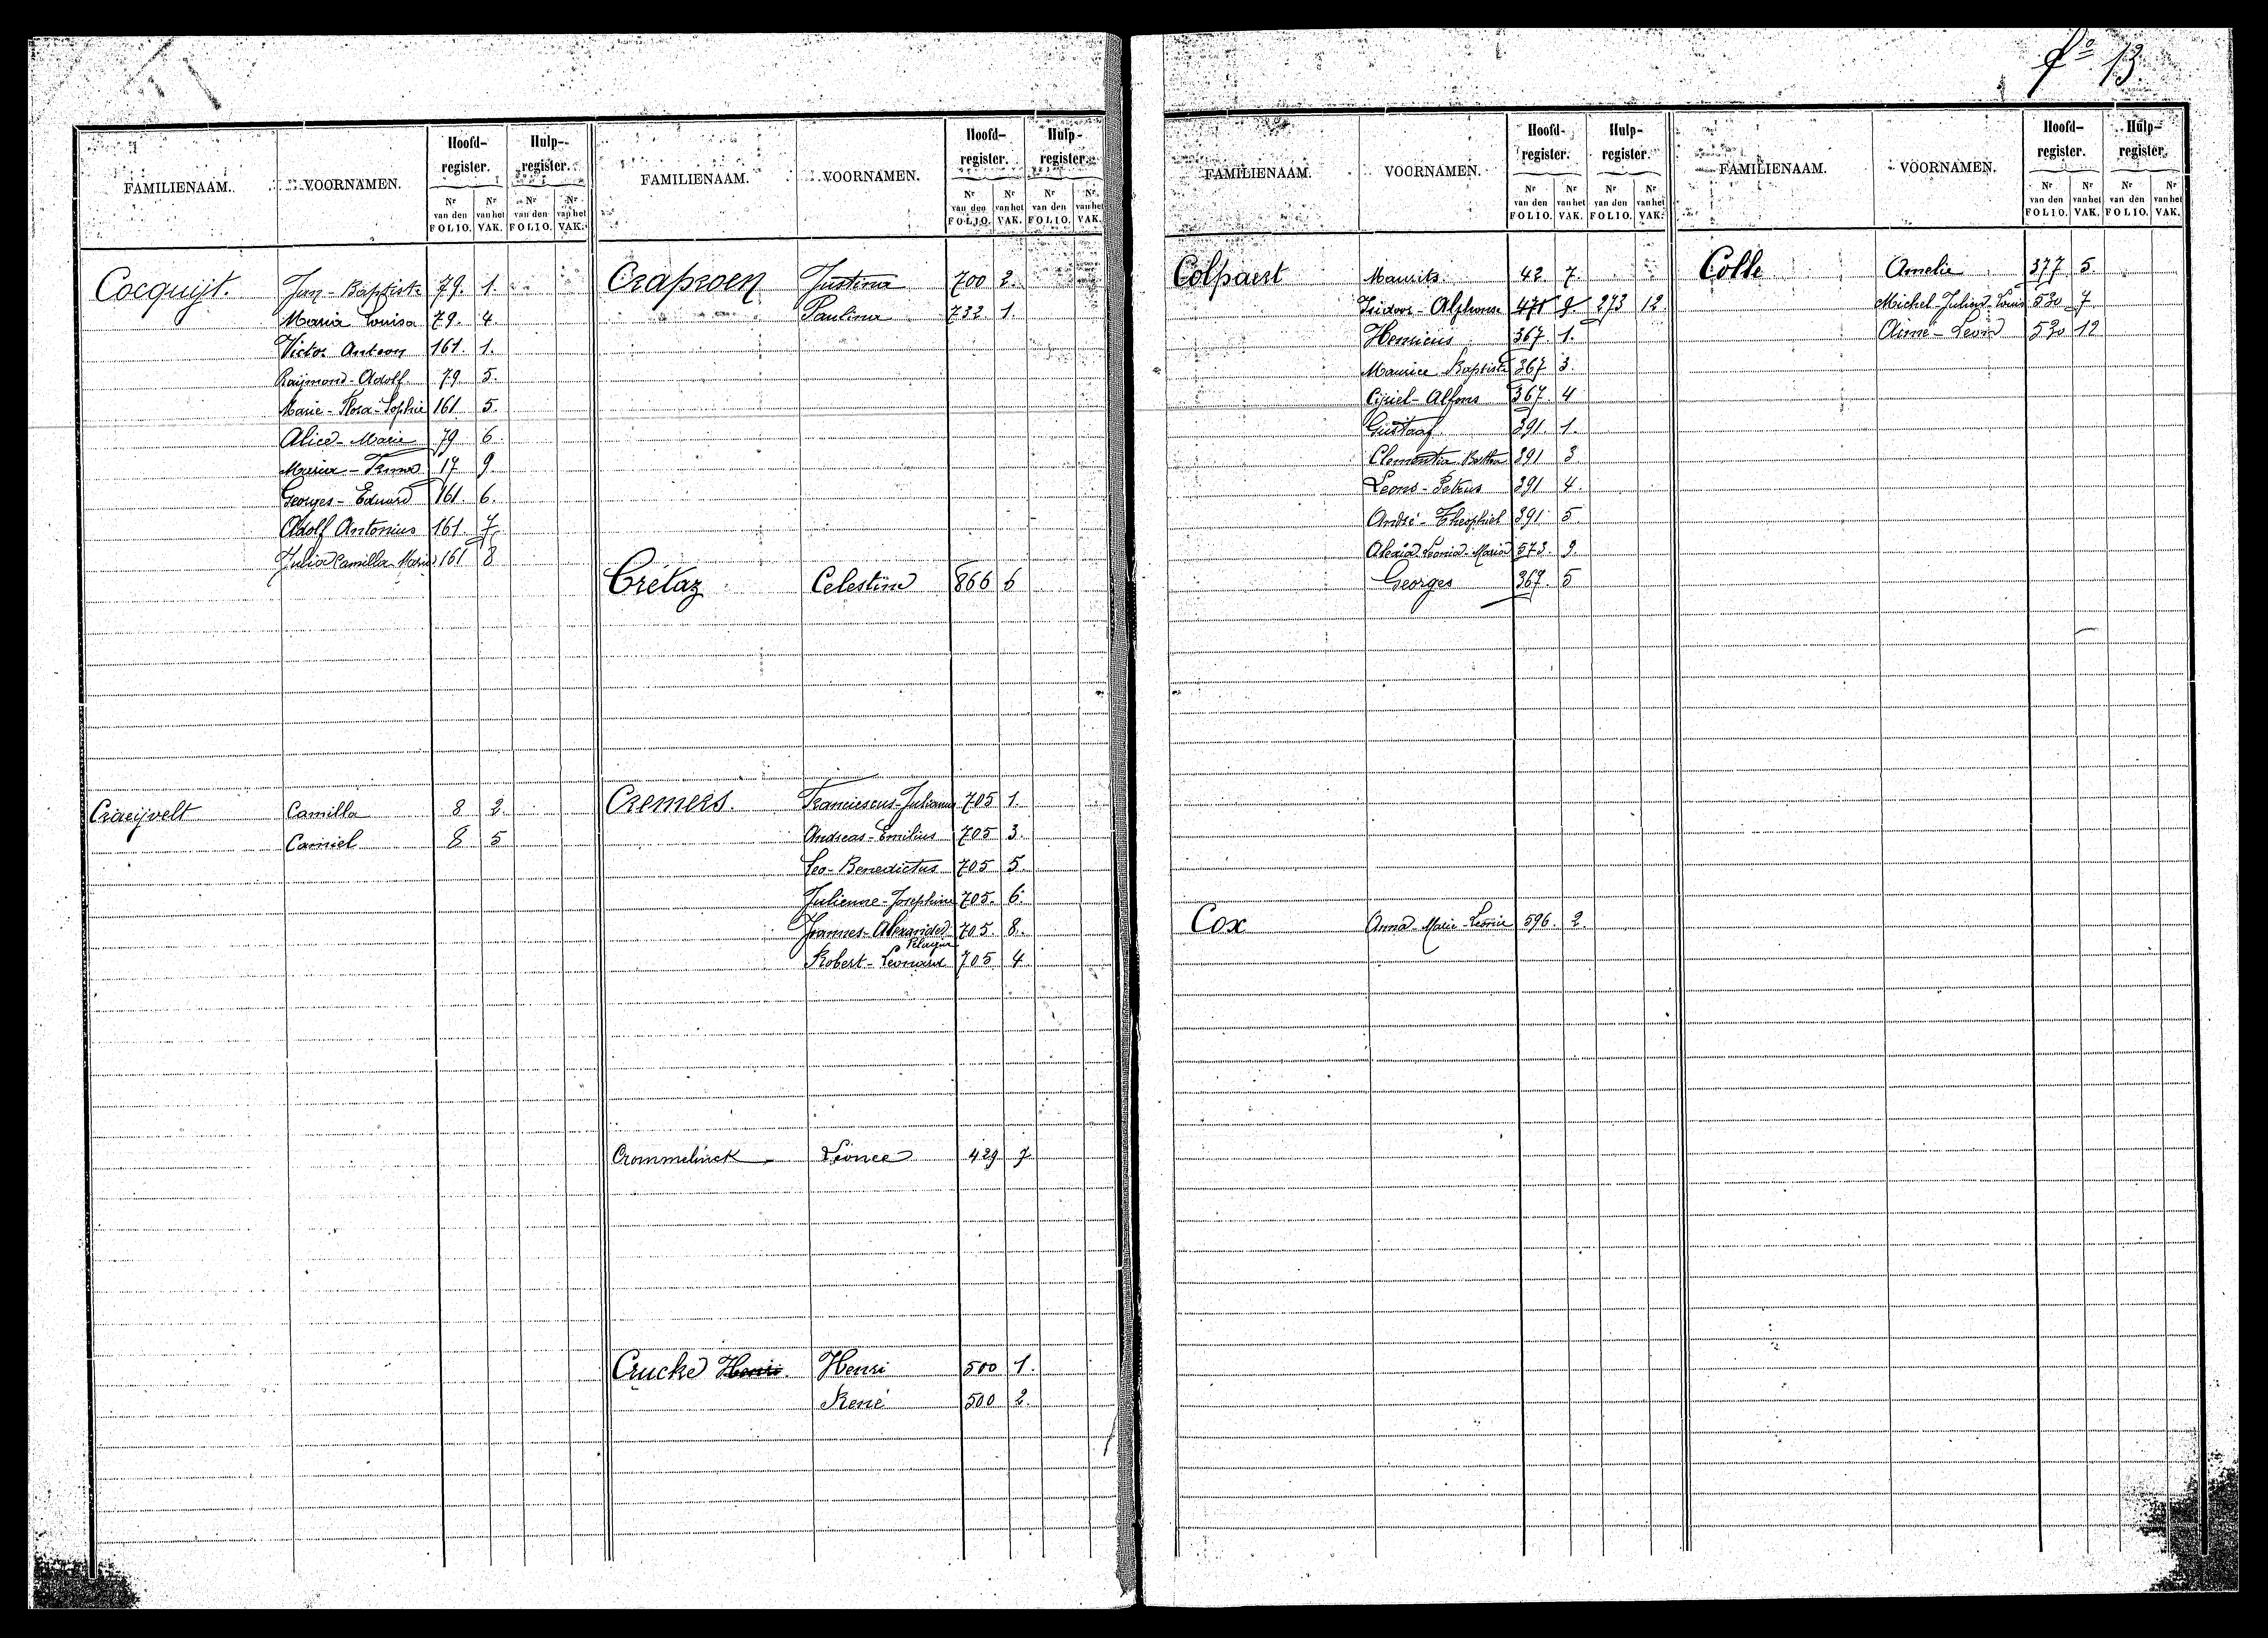 fº 13
FAMILIENAAM. VOORNAMEN. Hoofd-register. Hulp-register.
Nr van den FOLIO. Nr van het VAK. Nr van den FOLIO. Nr van het VAK.
Cocquijt. Jan-Baptiste 79. 1.
Maria Louisa 79. 4.
Victor Antoon 161. 1.
Raijmond-Adolf 79 5.
Marie-Flora-Sophie 161 5.
Alice-Marie 79 6.
Maria-Irma 17 9.
Georges-Eduard 161. 6.
Adolf Antonius 161. 7
Julia Camilla Maria 161 8
Craeijvelt Camilla 8 2.
Camiel 8 5
FAMILIENAAM. VOORNAMEN. Hoofd-register. Hulp-register.
Nr van den FOLIO. Nr van het VAK. Nr van den FOLIO. Nr van het VAK.
Craproen Justina 700 2.
Paulina 732 1.
Crétaz Celestine 866 6
Cremers. Franciescus-Julianus 705 1.
Andreas-Emilius 705 3.
Leo-Benedictus 705 5.
Julienne-Josephine 705. 6.
Joannes-Alexander 705 8.
Pelagia
Robert-Leonard 705 4
Crommelinck Léonce 429 7
Crucke Henri. Henri 500 1.
René 500 2.
FAMILIENAAM. VOORNAMEN. Hoofd-register. Hulp-register.
Nr van den FOLIO. Nr van het VAK. Nr van den FOLIO. Nr van het VAK.
Colpaert Maurits 42 7
Isidoor-Alphonse 471 9. 273 12.
Henricus 367. 1.
Maurice Baptiste 367 3.
Cijriel-Alfons 367. 4
Gustaaf 391. 1.
Clementia Bertha 391 3
Leons-Petrus 391 4.
André-Theophiel 391 5.
Alexia Leonia-Maria 573. 9.
Georges 367. 5
Cox Anna-Marie-Leonie 596. 2.
FAMILIENAAM. VOORNAMEN. Hoofd-register. Hulp-register.
Nr van den FOLIO. Nr van het VAK. Nr van den FOLIO. Nr van het VAK.
Colle Amelie 377 5.
Michel-Julien-Louis 530 7
Aimé-Leon 530 12